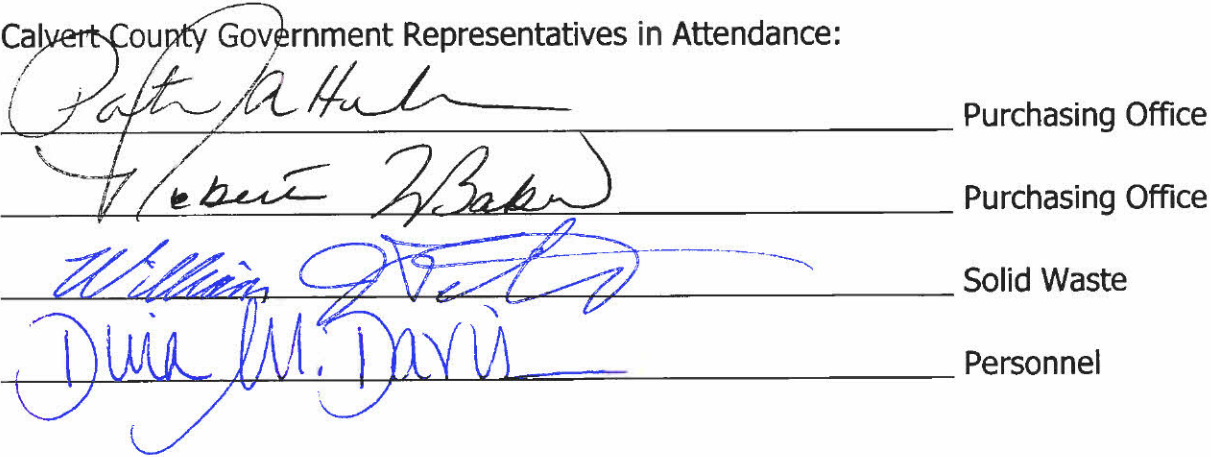 Calvert County Government Representatives in Attendance:
Purchasing Office
Robert Baker Purchasing Office
William Solid Waste
M. Davis Personnel